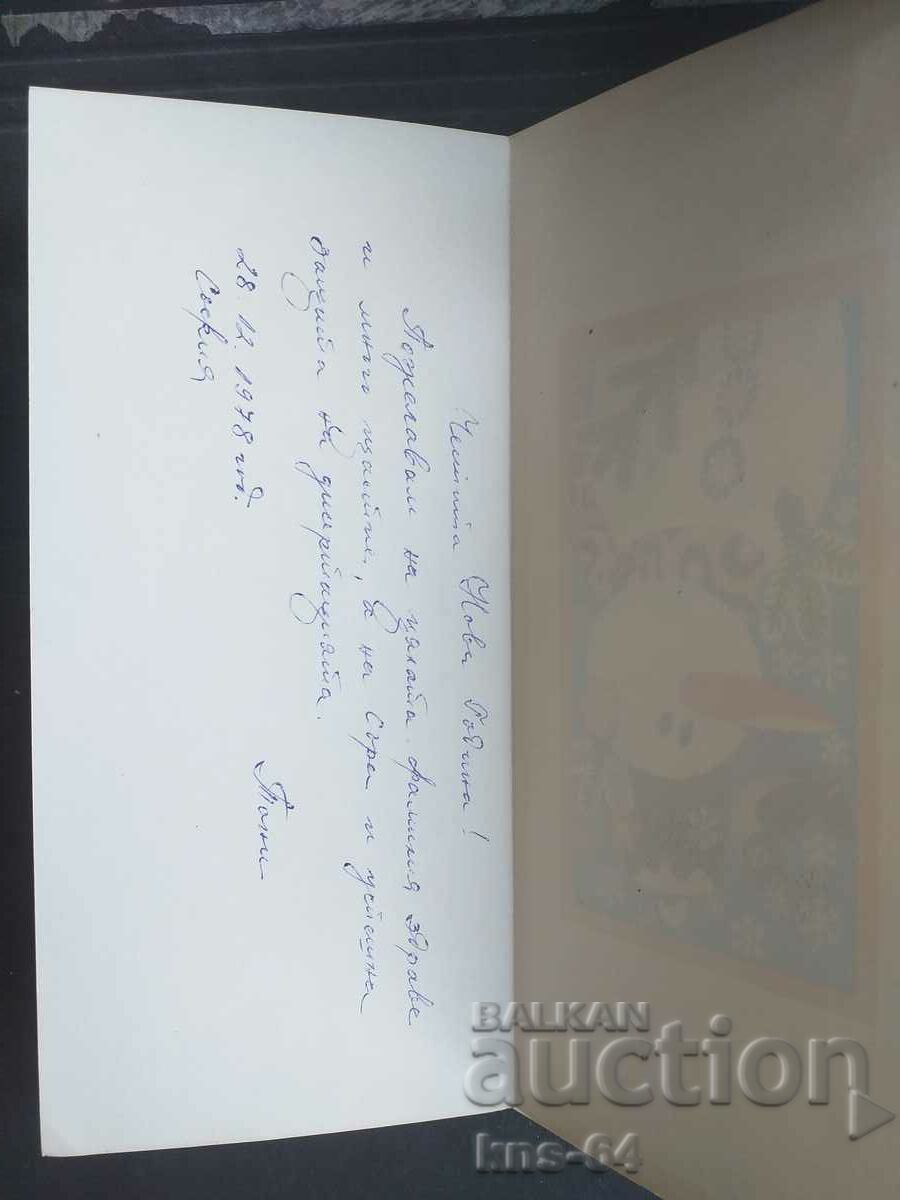 Честита Нова Година!
Пожелавам на цялата фамилия здраве
и много щастие, а на Съри и успешна
защита на дисертацията.
28.12.1978 год.
София
Тани
BALKAN
auction
kns-64